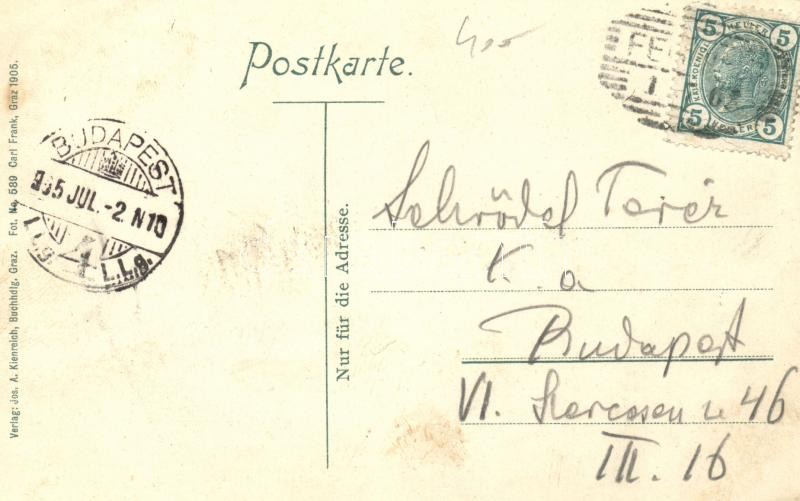 400
Postkarte.
5 HELLER 5
5 HELLER 5
BUDAPEST
905 JUL.-2 N10
4
L.L.g.
Schrödel Teréz
K. a
Budapest
VI. u 46
III. 16
Nur für die Adresse.
Verlag: Jos. A. Kienreich, Buchhdlg. Graz. Fot. No. 589 Carl Frank, Graz 1905.